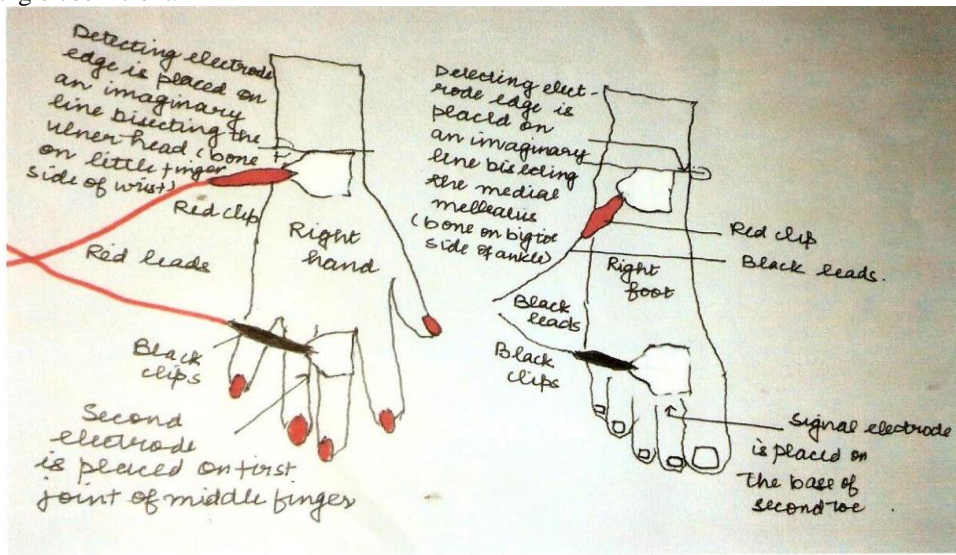 Detecting electrode
edge is placed on
an imaginary
line bisecting the
ulner head (bone
on little finger
side of wrist)
Red clip
Red leads
Right
hand
Black
clips
Second
electrode
is placed on first
joint of middle finger
Detecting elect-
rode edge is
placed on
an imaginary
line bisecting
the medial
melleatus
(bone on bigtoe
side of ankle)
Red clip
Black leads.
Right
foot
Black
leads
Black
clips
Signal electrode
is placed on
the base of
second toe